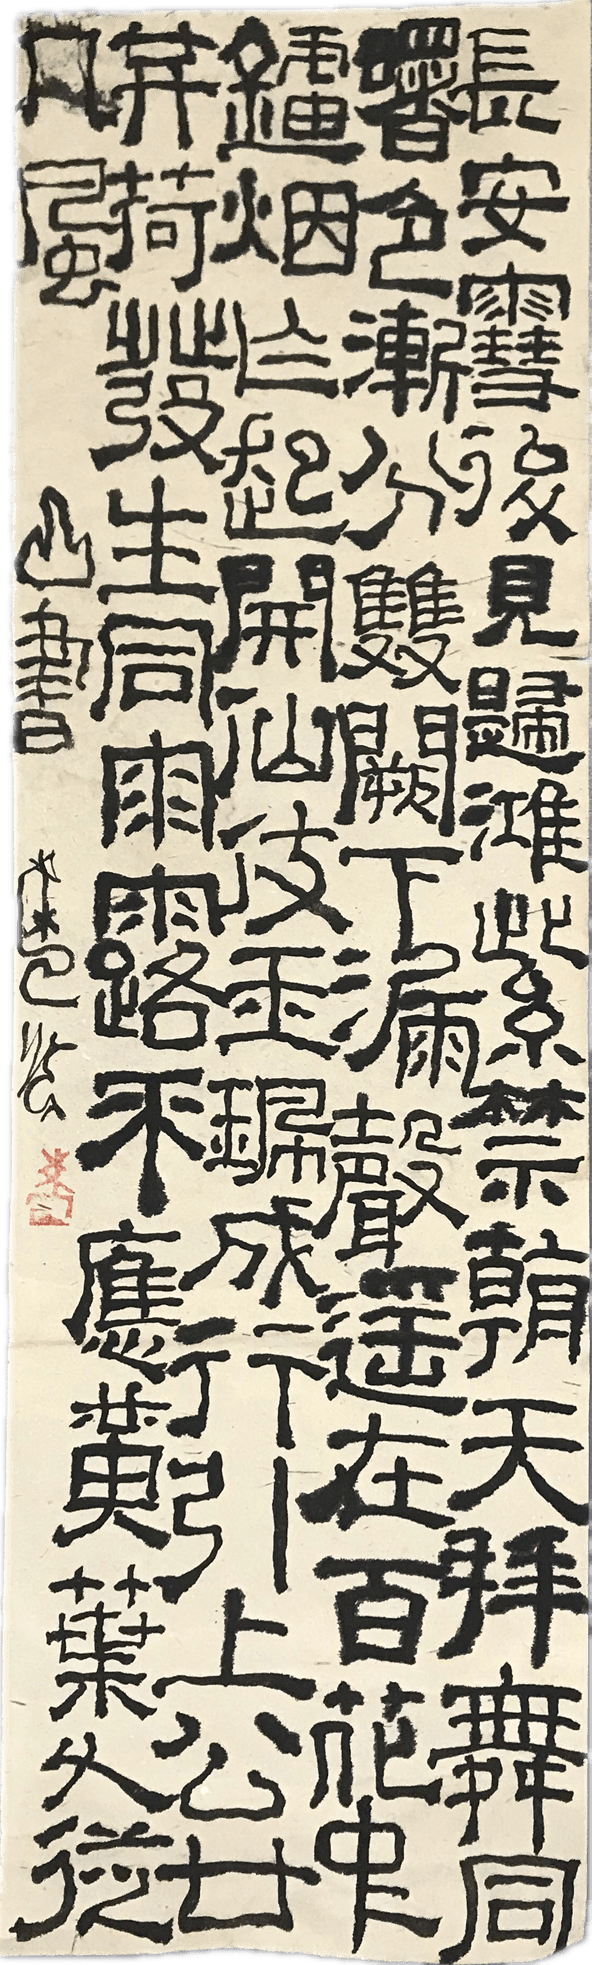 長安雪後見歸鴻紫禁朝天拜舞同
曙色漸分雙闕下漏聲遥在百花中
鑪烟乍起開仙仗玉珮成行引上公廿
共荷發生同雨露不應黃葉久從
風
山書